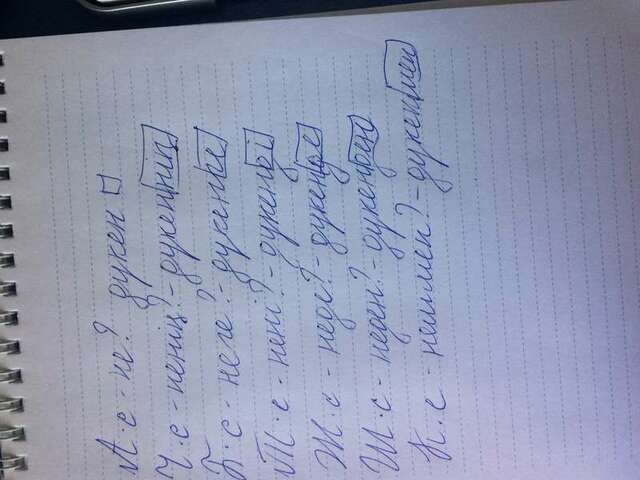 А.с - не? дукен
Ч.с - неніц? - дукеннін
Б.с - неге? - дукенге
Т.с - нені? - дукенді
Ж.с - неде? - дукенде
Ш.с - неден? - дукенден
К.с - немімен? - дукенмен